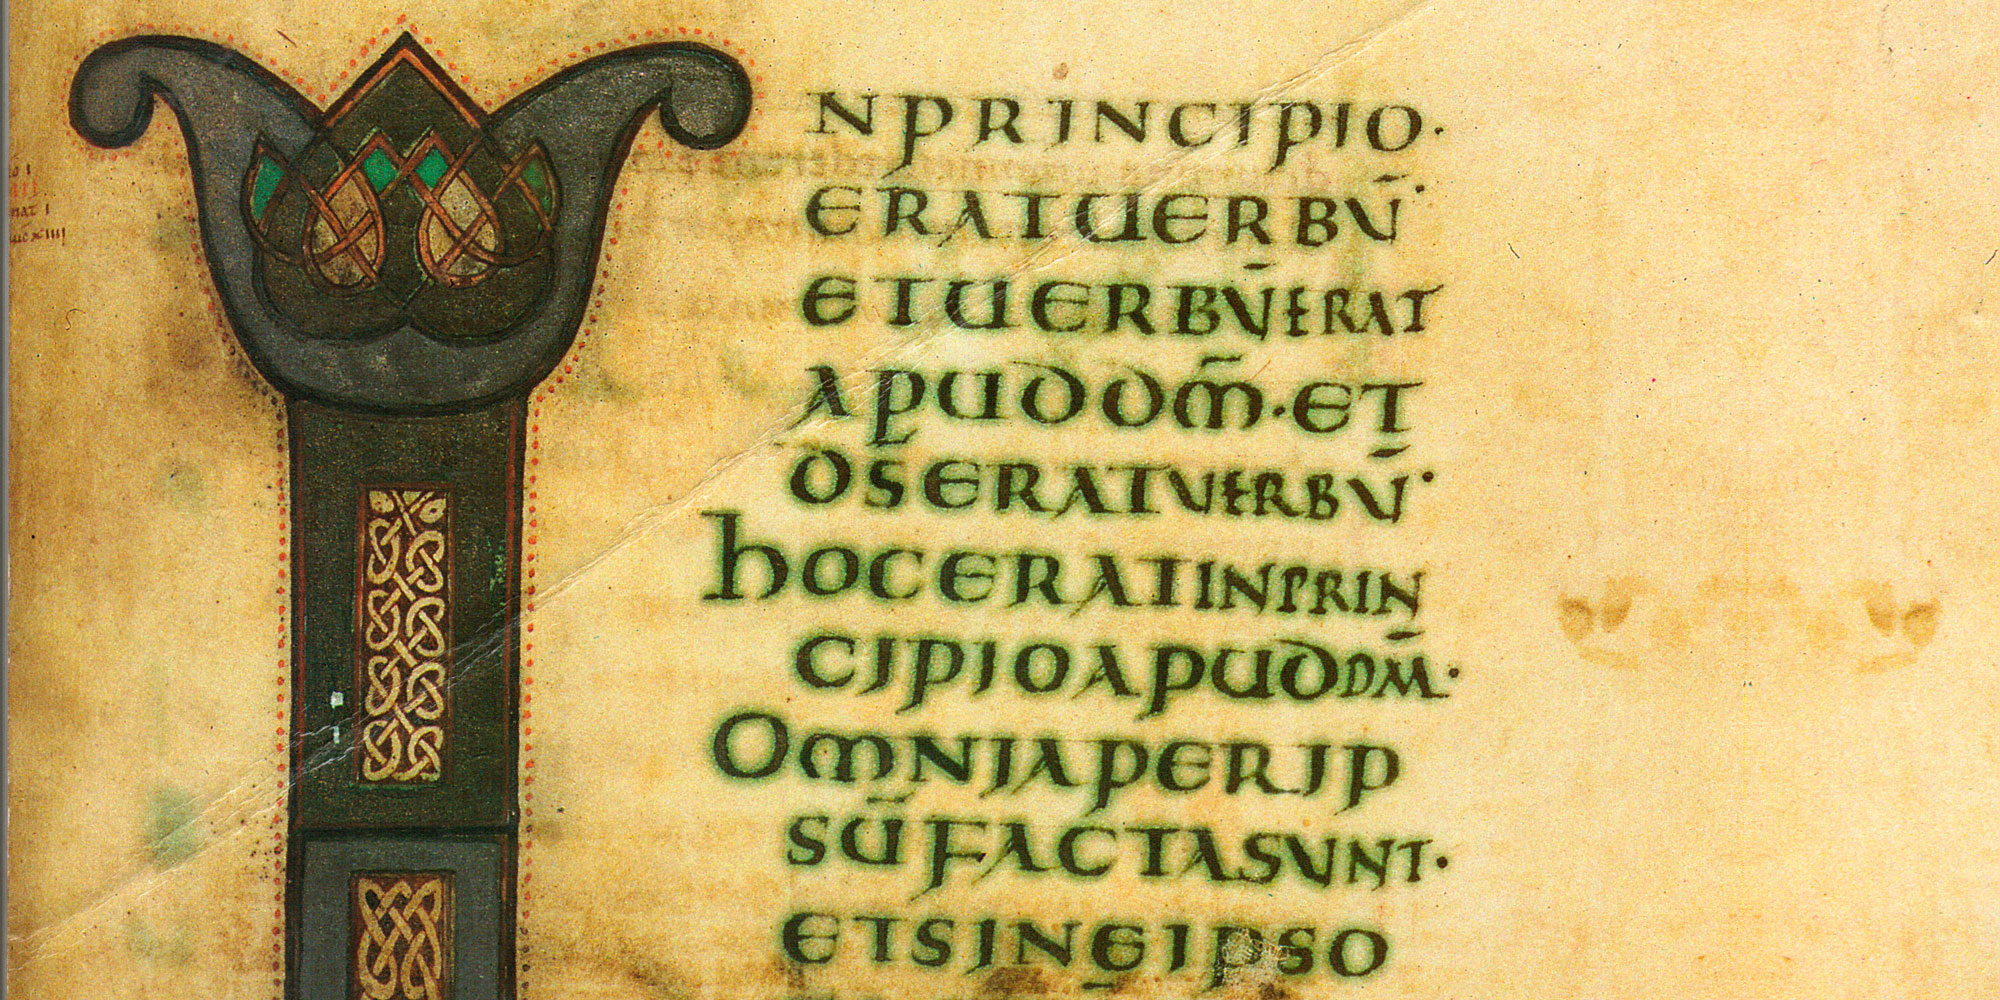 IN PRINCIPIO·
ERAT UERBŪ·
ET UERBŪ ERAT
APUD DM̄· ET
DS̄ ERAT UERBŪ·
hOC ERAT IN PRIN
CIPIO APUD DM̄·
OMNIA PER IP
SŪ FACTA SUNT·
ET SINE IPSO